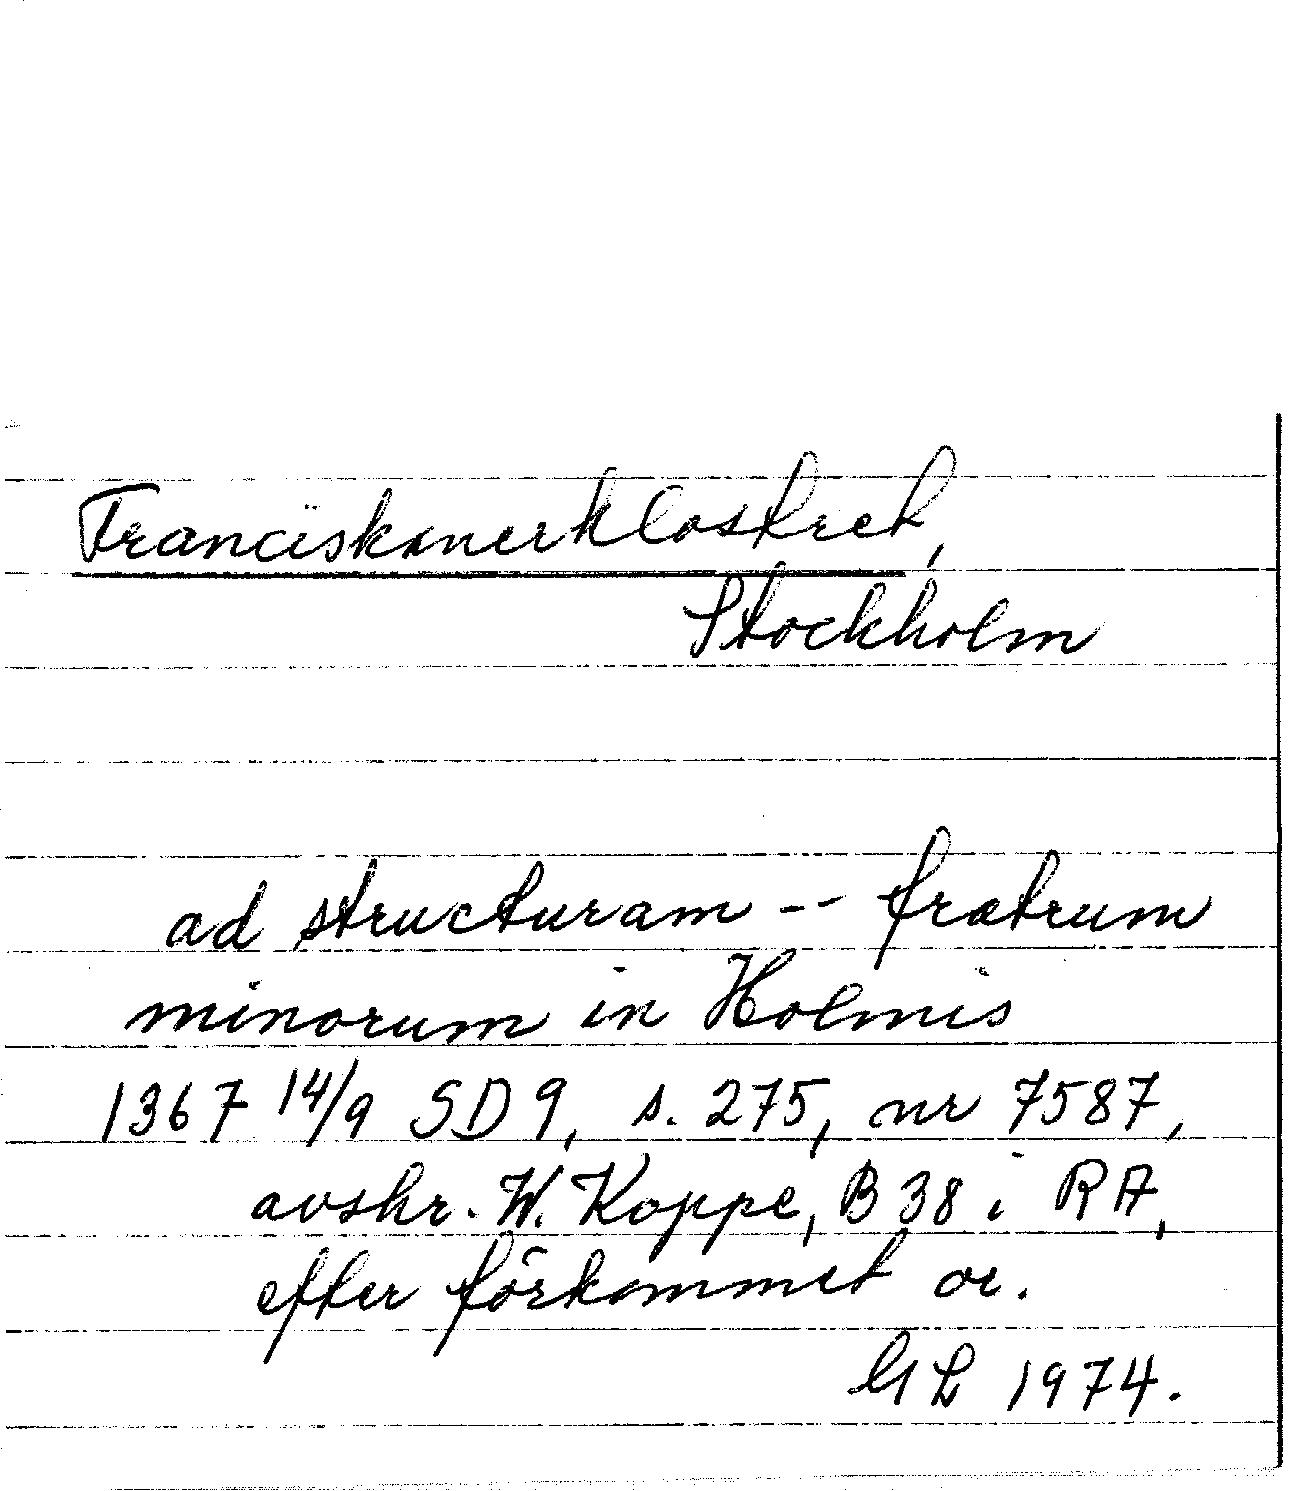 Franciskanerklostret,
Stockholm
ad structuram -- fratrum
minorum in Holmis
1367 14/9 SD 9, s. 275, nr 7587,
avskr. W. Koppe, B 38 i RA,
efter förkommet or.
GL 1974.